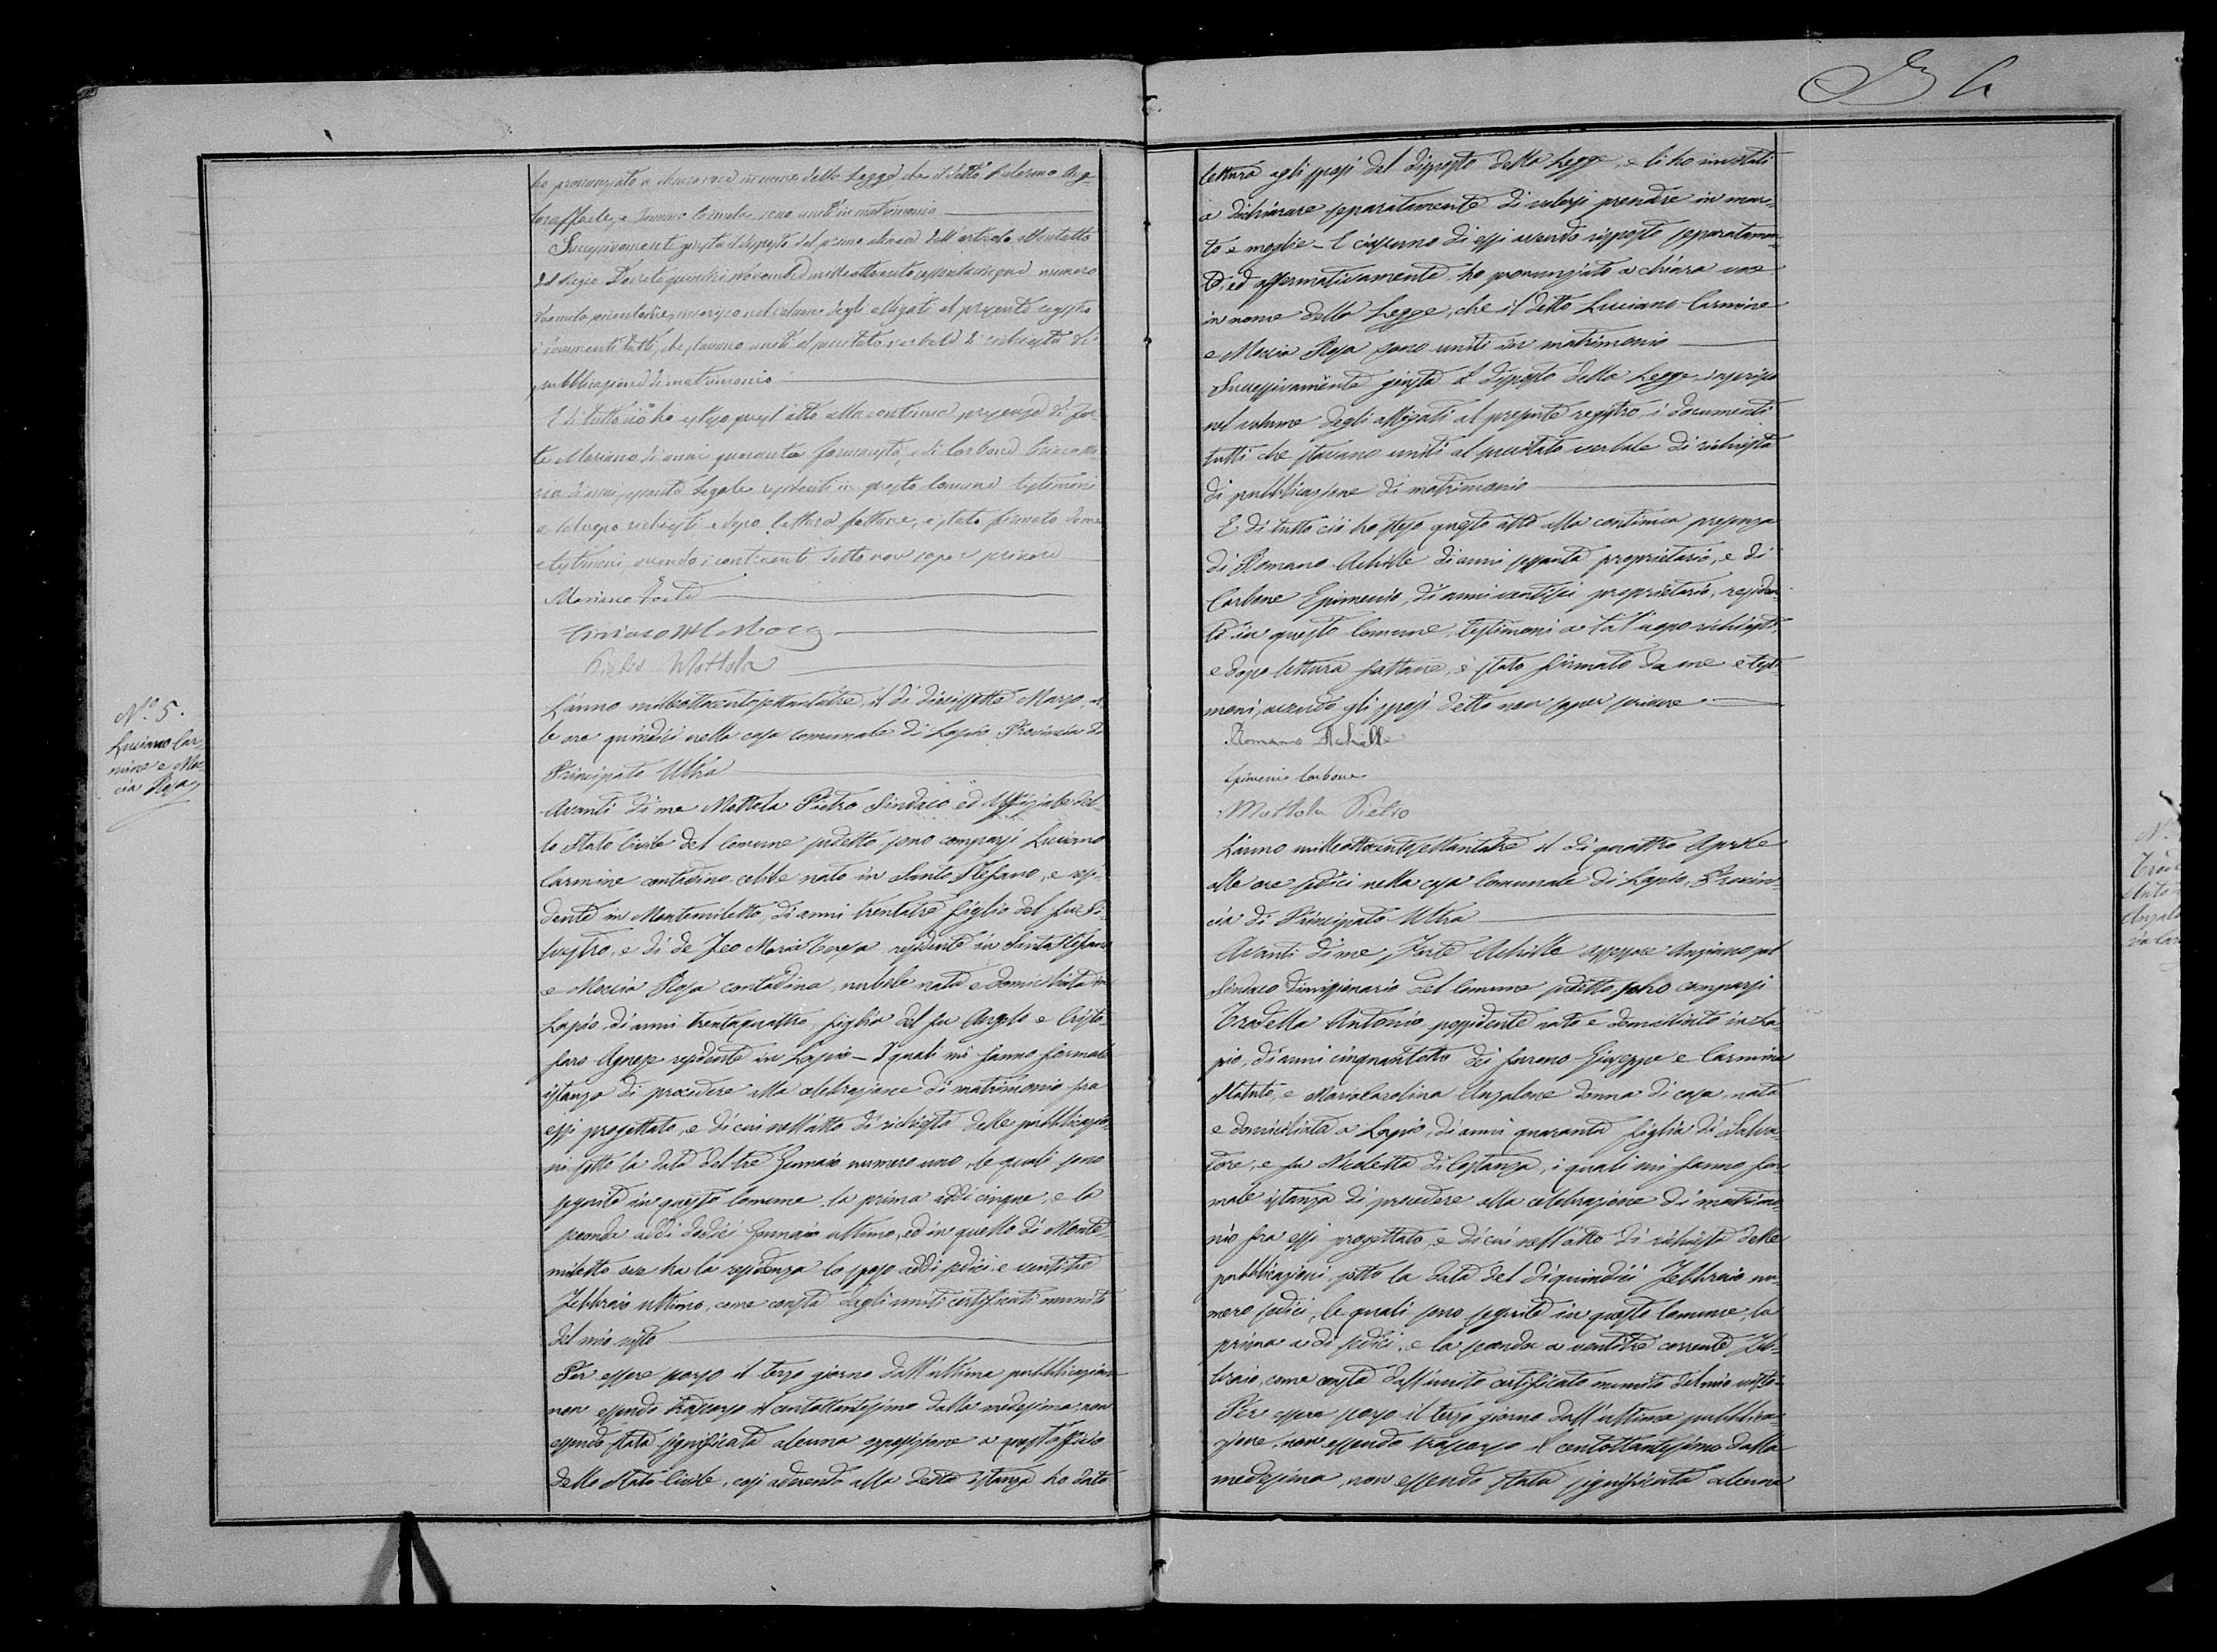 ho pronunziato a chiara voce in nome della Legge, che il detto Palermo Ang-
loraffaele, e Carmela sono uniti in matrimonio
Successivamente giusta il disposto del primo alinea dell'articolo ottantotto
del Regio Decreto quindici novembre milleottocentosessantacinque numero
inserisco nel volume degli allegati al presente registro
i documenti tutti, che stavano uniti al precitato verbale di richiesta di
pubblicazione di matrimonio
E di tutto ciò ho esteso quest'atto alla continua presenza di For-
te Mariano di anni quaranta farmacista, e di Carbone Ciriaco Ma
ria di anni sessanta Legale residenti in questo Comune testimoni
a tal uopo richiesti e dopo lettura fattane, è stato firmato da me
e testimoni, avendo i contraenti detto non saper scrivere
Mariano Forte
Ciriaco M. Carbone
Pietro Mottola
N.º 5.
Luciano Car-
mine e Moc-
cia Rosa
L'anno milleottocentosettantatre, il dì diciassette Marzo, al-
le ore quindici nella casa comunale di Lapio Provincia di
Principato Ultra
Avanti di me Mottola Pietro Sindaco ed Uffiziale del-
lo Stato Civile del Comune sudetto sono comparsi Luciano
Carmine contadino celibe nato in Santo Stefano, e resi-
dente in Montemiletto, di anni trentatre figlio del fu Si-
lvestro, e di de Feo Maria Teresa residente in Santo Stefano
e Moccia Rosa contadina, nubile nata e domiciliata in
Lapio, di anni trentaquattro figlia del fu Angelo e Cristo-
faro Agnese residente in Lapio – I quali mi fanno formale
istanza di procedere alla celebrazione di matrimonio fra
essi progettato, e di cui nell'atto di richiesta delle pubblicazio-
ni sotto la data del tre Gennaio numero uno, le quali sono
seguite in questo Comune, la prima addì cinque, e la
seconda addì dodici Gennaio ultimo, ed in quello di Monte-
miletto ove ha la residenza lo sposo addì sedici e ventitre
Febbraio ultimo, come consta dagli uniti certificati muniti
del mio visto
Per essere scorso il terzo giorno dall'ultima pubblicazione
non essendo trascorso il centottantesimo dalla medesima; non
essendo stata significata alcuna opposizione a quest'officio
dello Stato Civile, così aderendo alla detta istanza ho dato
lettura agli sposi del disposto della Legge, e li ho invitati
a dichiarare separatamente di volersi prendere in mari-
to e moglie – E ciascuno di essi avendo risposto separatamen-
te, ed affermativamente, ho pronunziato a chiara voce
in nome della Legge, che il detto Luciano Carmine
e Moccia Rosa sono uniti in matrimonio
Successivamente giusta il disposto della Legge, inserisco
nel volume degli allegati al presente registro, i documenti
tutti che stavano uniti al precitato verbale di richiesta
di pubblicazione di matrimonio
E di tutto ciò ho steso questo atto alla continua presenza
di Romano Achille di anni sessanta proprietario, e di
Carbone Epimenio, di anni ventisei proprietario, residen-
ti in questo Comune, testimoni a tal uopo richiesti,
e dopo lettura fattane, è stato firmato da me e testi-
moni, avendo gli sposi detto non saper scrivere
Romano Achille
Epimenio Carbone
Mottola Pietro
L'anno milleottocentosettantatre il dì quattro Aprile
alle ore sedici nella casa Comunale di Lapio, Provin-
cia di Principato Ultra
Avanti di me, Forte Achille assessore Anziano pel
Sindaco dimissionario del Comune sudetto, sono comparsi
Trodella Antonio, possidente nato e domiciliato in La-
pio, di anni cinquantotto dei furono Giuseppe e Carmina
Statuto, e Maria Carolina Anzalone donna di casa, nata
e domiciliata a Lapio, di anni quaranta figlia di Salva-
tore, e fu Modesta di Costanza, i quali mi fanno for-
male istanza di procedere alla celebrazione di matrimo-
nio fra essi progettato, e di cui nell'atto di richiesta delle
pubblicazioni sotto la data del dì quindici Febbraio nu-
mero sedici, le quali sono seguite in questo Comune, la
prima a dì sedici, e la seconda a ventitre corrente Feb-
braio, come consta dall'unito certificato munito del mio visto
Per essere scorso il terzo giorno dall'ultima pubblica-
zione, non essendo trascorso il centottantesimo dalla
medesima, non essendo stata significata alcuna